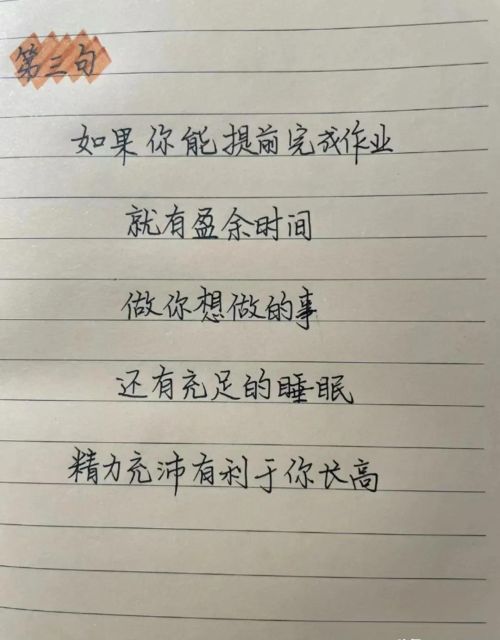 第三句
如果你能提前完成作业
就有盈余时间
做你想做的事
还有充足的睡眠
精力充沛有利于你长高